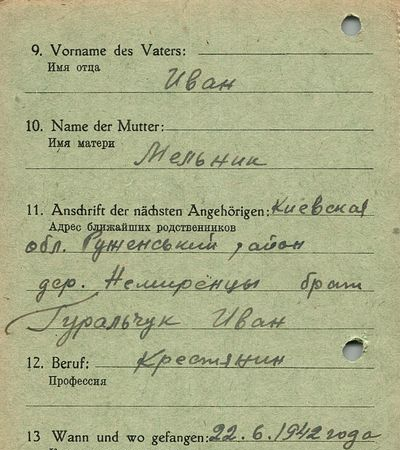 9. Vorname des Vaters:
Имя отца
Иван
10. Name der Mutter:
Имя матери
Мельник
11. Anschrift der nächsten Angehörigen: Киевская
Адрес ближайших родственников
обл. Руженський район
дер. Немиренцы брат
Гуральчук Иван
12. Beruf: Крестянин
Профессия
13 Wann und wo gefangen: 22.6.1942 года